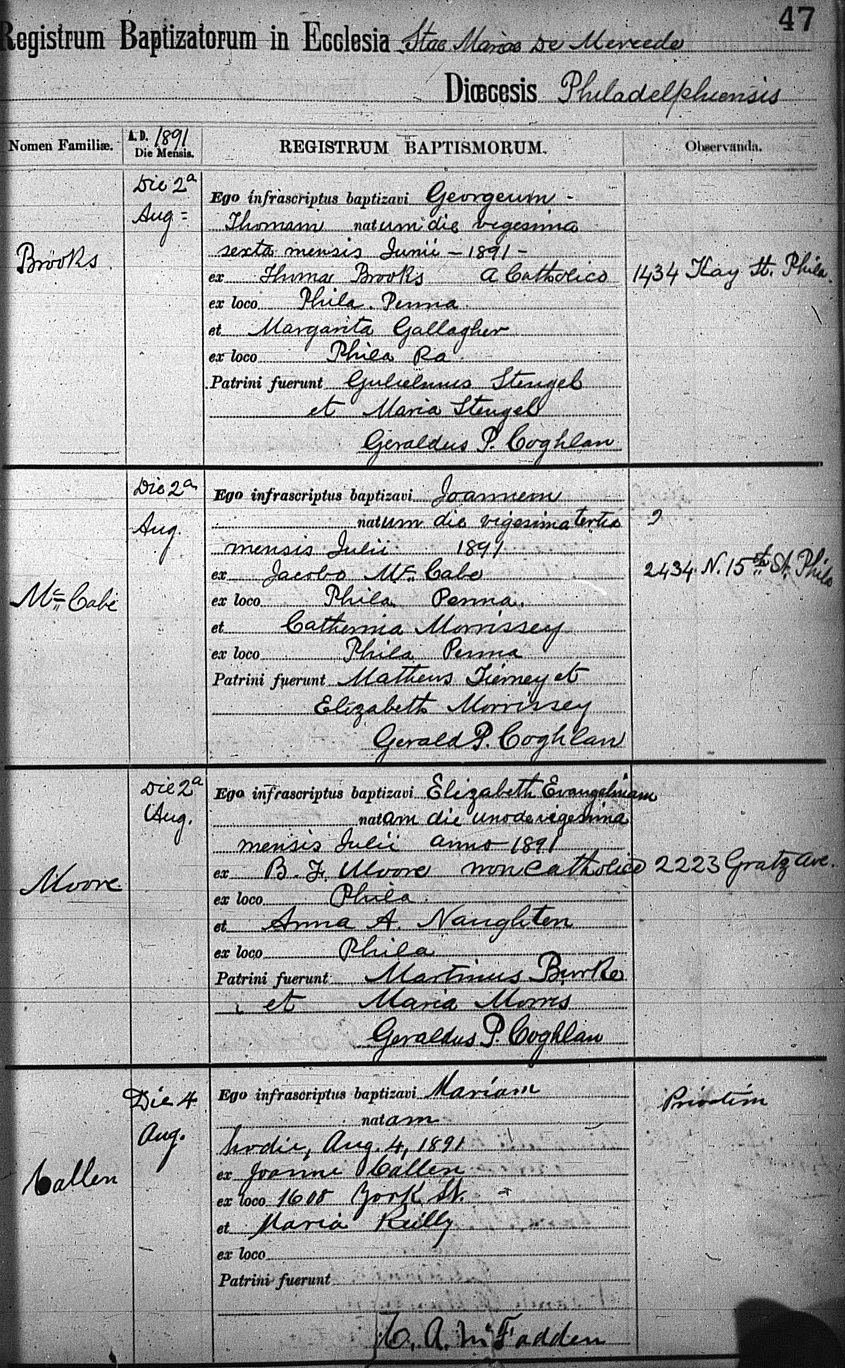 47
Registrum Baptizatorum in Ecclesia Stae Mariae De Mercede
Diœcesis Philadelphiensis
Nomen Familiæ.
A.D. 1891
Die Mensis.
REGISTRUM BAPTISMORUM.
Observanda.
Brooks
Die 2a
Aug-
Ego infrascriptus baptizavi Georgeum -
Thomam natum die vigesima
sexta mensis Junii - 1891 -
ex Thoma Brooks A Catholico
ex loco Phila. Penna.
et Margarita Gallagher
ex loco Phila Pa.
Patrini fuerunt Gulielmus Stengel
et Maria Stengel
Geraldus P. Coghlan
1434 Kay St. Phila.
Mc Cabe
Die 2a
Aug.
Ego infrascriptus baptizavi Joannem
natum die vigesima tertia
mensis Julii 1891
ex Jacobo Mc Cabe
ex loco Phila Penna.
et Catherina Morrissey
ex loco Phila Penna
Patrini fuerunt Matheus Tierney et
Elizabeth Morrissey
Gerald P. Coghlan
2
2434 N. 15th St. Phila
Moore
Die 2a
Aug.
Ego infrascriptus baptizavi Elizabeth Evangelinam
natam die unodevigesima
mensis Julii anno 1891
ex B. F. Moore non Catholico
ex loco Phila.
et Anna A. Naughten
ex loco Phila
Patrini fuerunt Martinus Burke
et Maria Morris
Geraldus P. Coghlan
2223 Gratz Ave.
Callen
Die 4
Aug.
Ego infrascriptus baptizavi Mariam
natam
hodie, Aug. 4, 1891
ex Joanne Callen
ex loco 1600 York St.
et Maria Reilly
ex loco
Patrini fuerunt
C. A. McFadden
Privatim